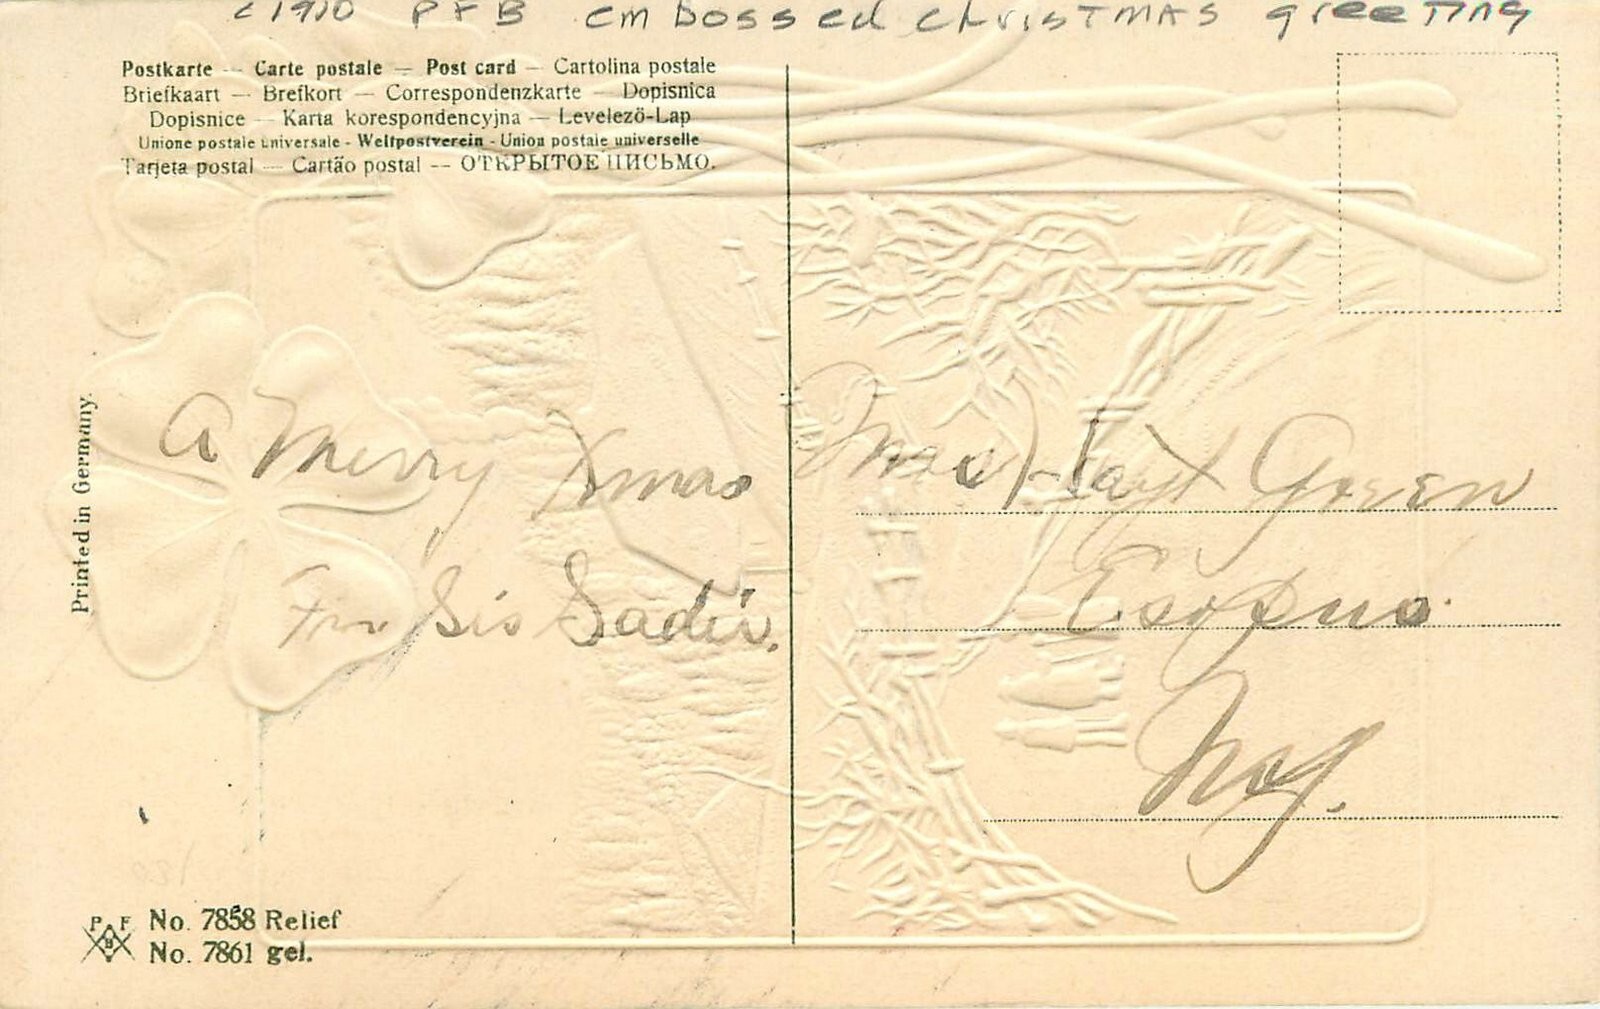 c1910 PFB embossed christmas greeting
Postkarte — Carte postale — Post card — Cartolina postale
Briefkaart — Brefkort — Correspondenzkarte — Dopisnica
Dopisnice — Karta korespondencyjna — Levelező-Lap
Unione postale universale - Weltpostverein - Union postale universelle
Tarjeta postal — Cartão postal -- ОТКРЫТОЕ ПИСЬМО.
Printed in Germany.
A Merry Xmas
Sis Sadie.
Hayt Green
Esopus.
N.Y.
P F B
No. 7858 Relief
No. 7861 gel.